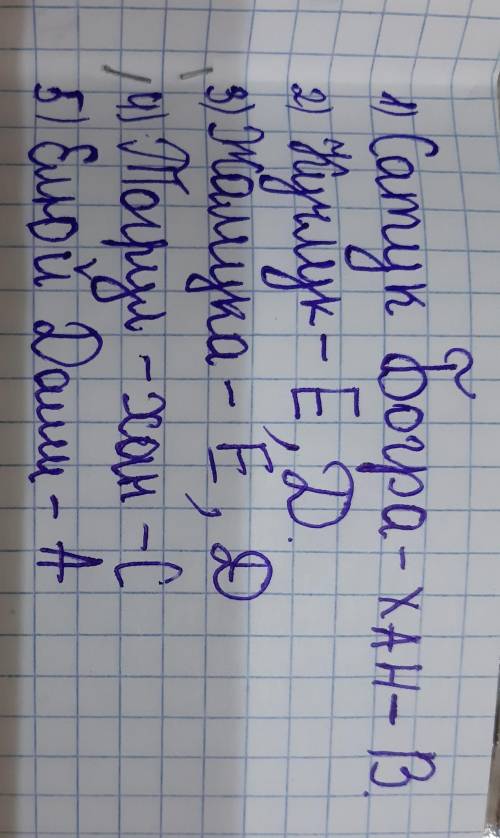 1) Сатук Богра-ХАН-В.
2) Кучлук-Е, Д.
3) Жамука-Е, Д
4) Тогрул-хан-С
5) Елюй Даши-А